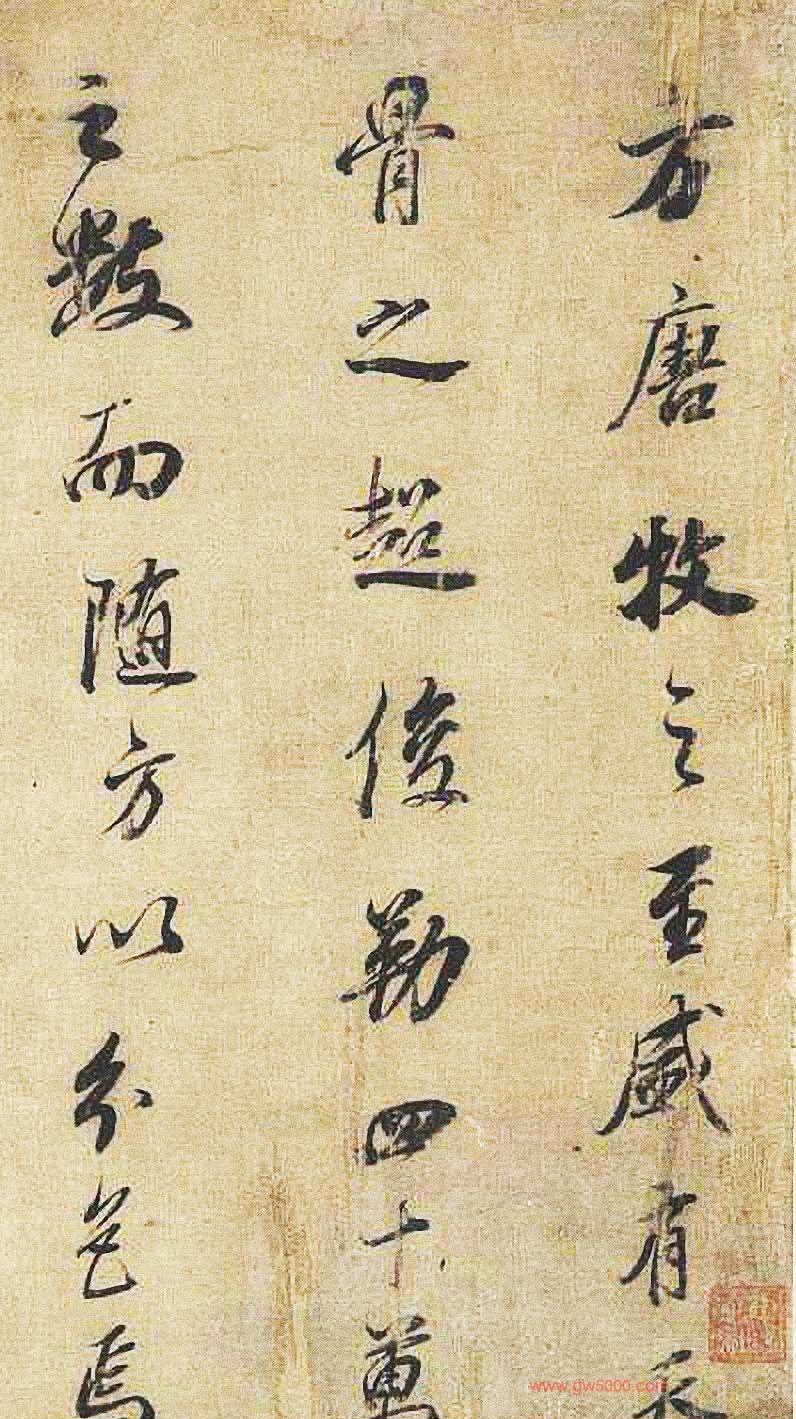 方唐牧之至盛有天
骨之超俊勒四十萬
之數而随方以分色焉
www.gw5000.com